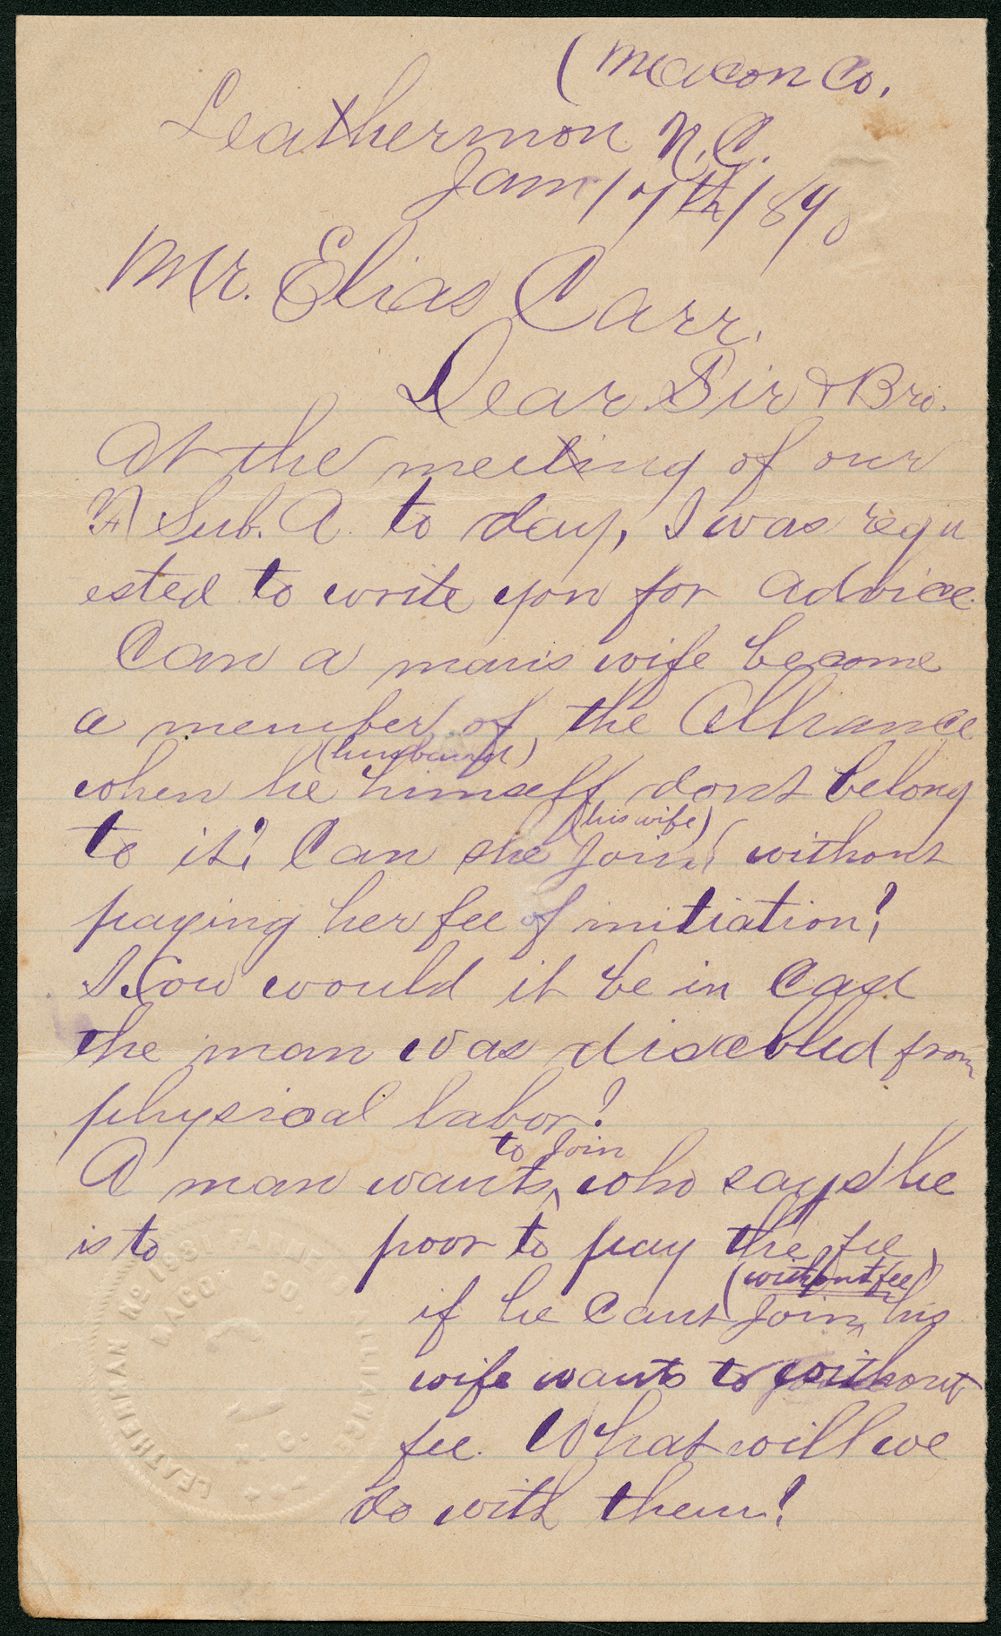 (Macon Co.
Leathermon N.C.
Jan. 17th/1890
Mr. Elias Carr.
Dear. Sir & Bro.
At the meeting of our
Sub. A. to day, I was requ
ested to write you for advice.
Can a man's wife become
a member of the Alliance
(husband)
when he himself dont belong
to it? Can she join
(his wife)
without
paying her fee of initiation?
How would it be in case
the man was disabled from
physical labor?
to Join
A man wants ^ who says he
is to poor to pay the fee
(without fee)
if he cant Join ^ his
wife wants to without
fee. What will we
do with them?
LEATHERMAN No. 1931 FARM ALLIANCE
MACON CO.
N. C.